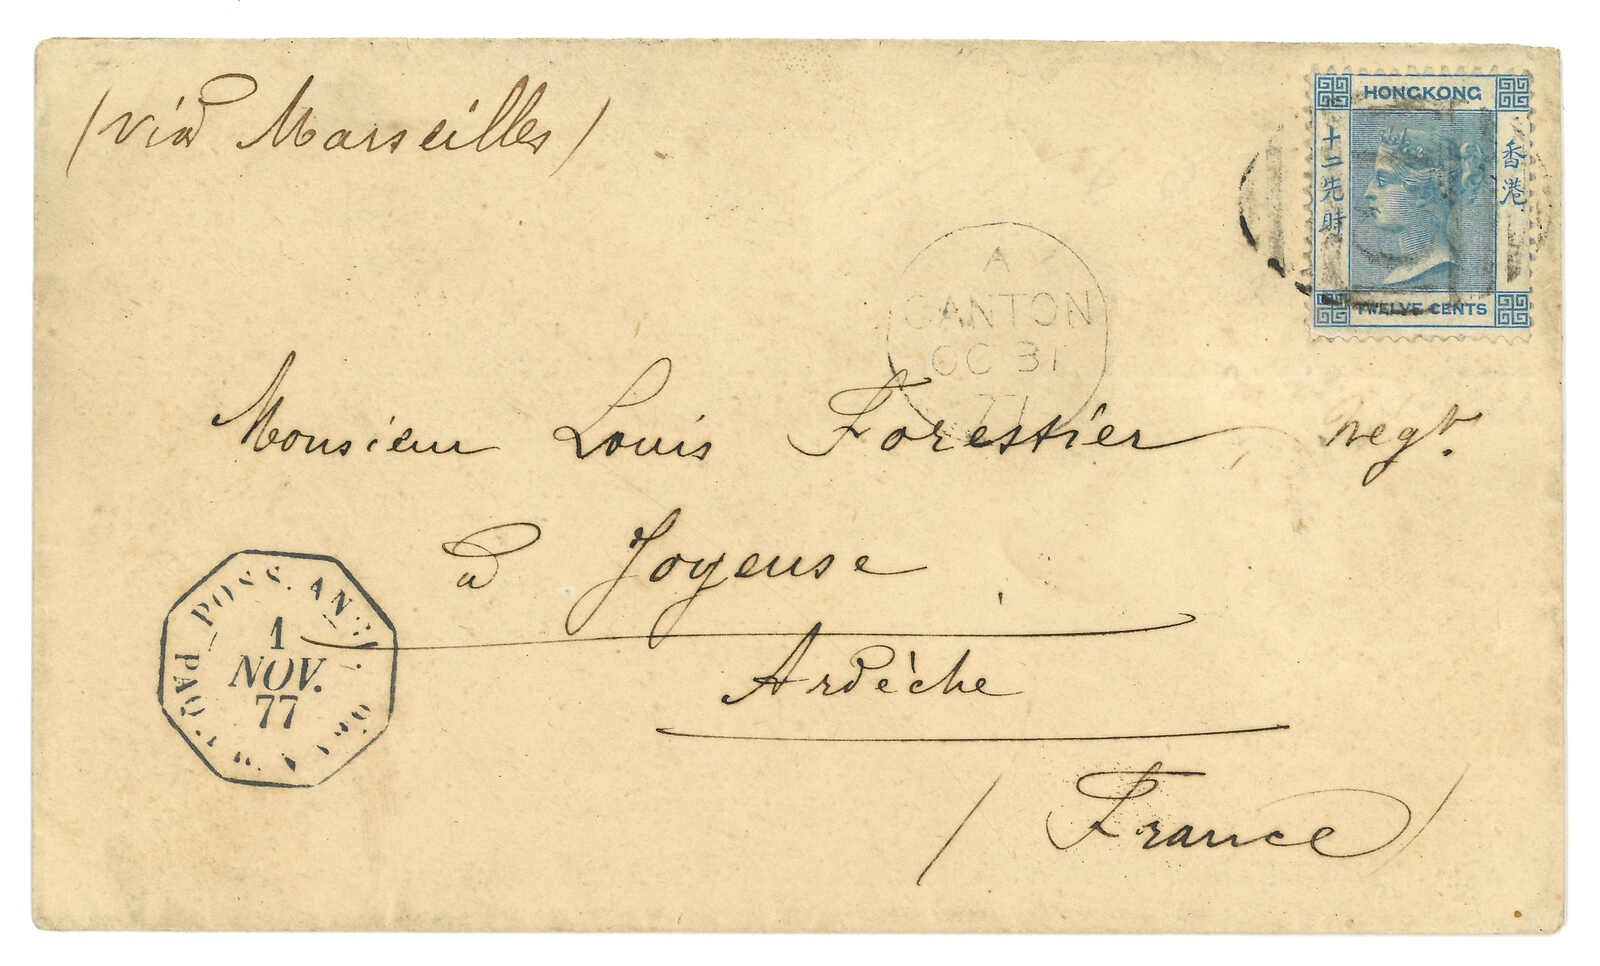 (via Marseilles)
HONGKONG
十二先時
香港
TWELVE CENTS
A
CANTON
OC 31
77
Monsieur Louis Forestier, Negt.
à Joyeuse
Ardèche
(France)
POSS. ANGL.
PAQ.
1
NOV.
77